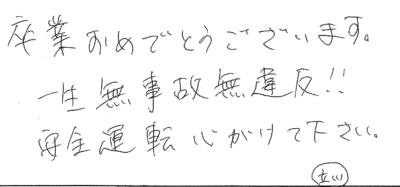 卒業おめでとうございます。
一生無事故無違反!!
安全運転心がけて下さい。
立川